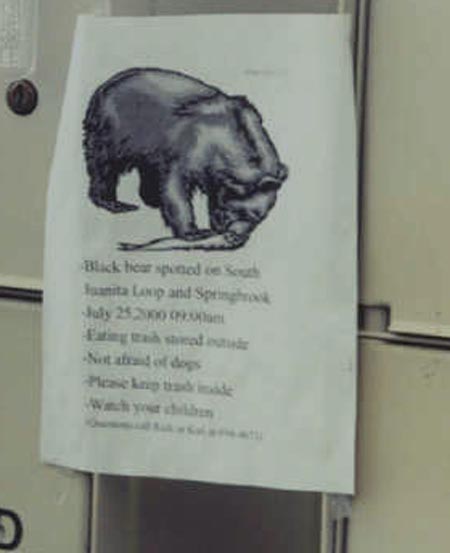 -Black bear spotted on South
Juanita Loop and Springbrook
-July 25,2000 09:00am
-Eating trash stored outside
-Not afraid of dogs
-Please keep trash inside
-Watch your children
-Questions call at
D